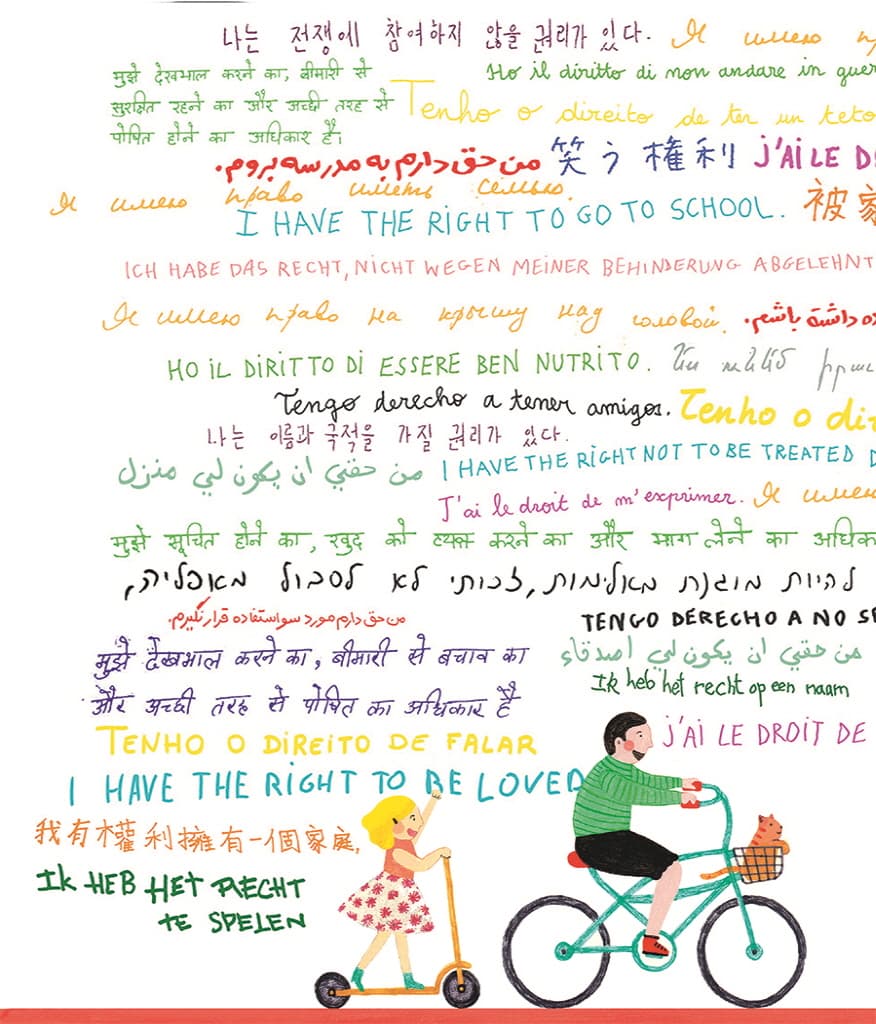 나는 전쟁에 참여하지 않을 권리가 있다. Я имею
मुझे देखभाल करने का, बीमारी से
Ho il diritto di non andare in
सुरक्षित रहने का और अच्छी तरह से
Tenho o direito de ter un teto
पोषित होने का अधिकार है।
من حق دارم به مدرسه بروم. 笑う権利 J'AI LE
Я имею право иметь семью.
I HAVE THE RIGHT TO GO TO SCHOOL. 被
ICH HABE DAS RECHT, NICHT WEGEN MEINER BEHINDERUNG ABGELEHNT
Я имею право на крышу над головой. داشته باشم.
HO IL DIRITTO DI ESSERE BEN NUTRITO.
Tengo derecho a tener amigos. Tenho o
나는 이름과 국적을 가질 권리가 있다.
من حقي ان يكون لي منزل I HAVE THE RIGHT NOT TO BE TREATED
J'ai le droit de m'exprimer. Я имею
मुझे सूचित होने का, खुद को व्यक्त करने का और भाग लेने का
להיות מוגנת מאלימות, זכותי לא לסבול מאפליה,
من حق دارم مورد سواستفاده قرار نگیرم. TENGO DERECHO A NO
मुझे देखभाल करने का, बीमारी से बचाव का من حقي ان يكون لي اصدقاء
Ik heb het recht op een naam
और अच्छी तरह से पोषित का अधिकार है
TENHO O DIREITO DE FALAR J'AI LE DROIT DE
I HAVE THE RIGHT TO BE LOVED
我有權利擁有一個家庭,
IK HEB HET RECHT
TE SPELEN